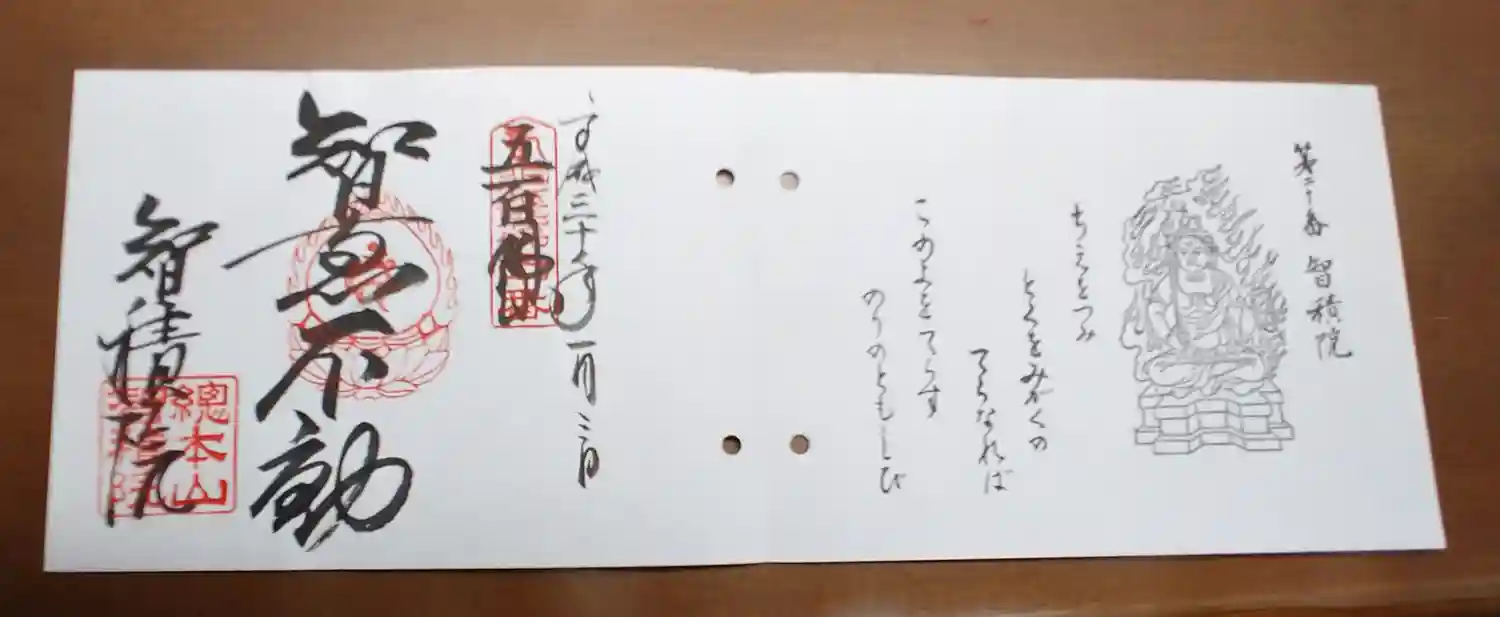 第二十番 智積院
ちえをつみ
とくをみがくの
てらなれば
このよをてらす
のりのともしび
平成三十年一月三日
五百佛山
智恵不動
智積院
總本山
智積院